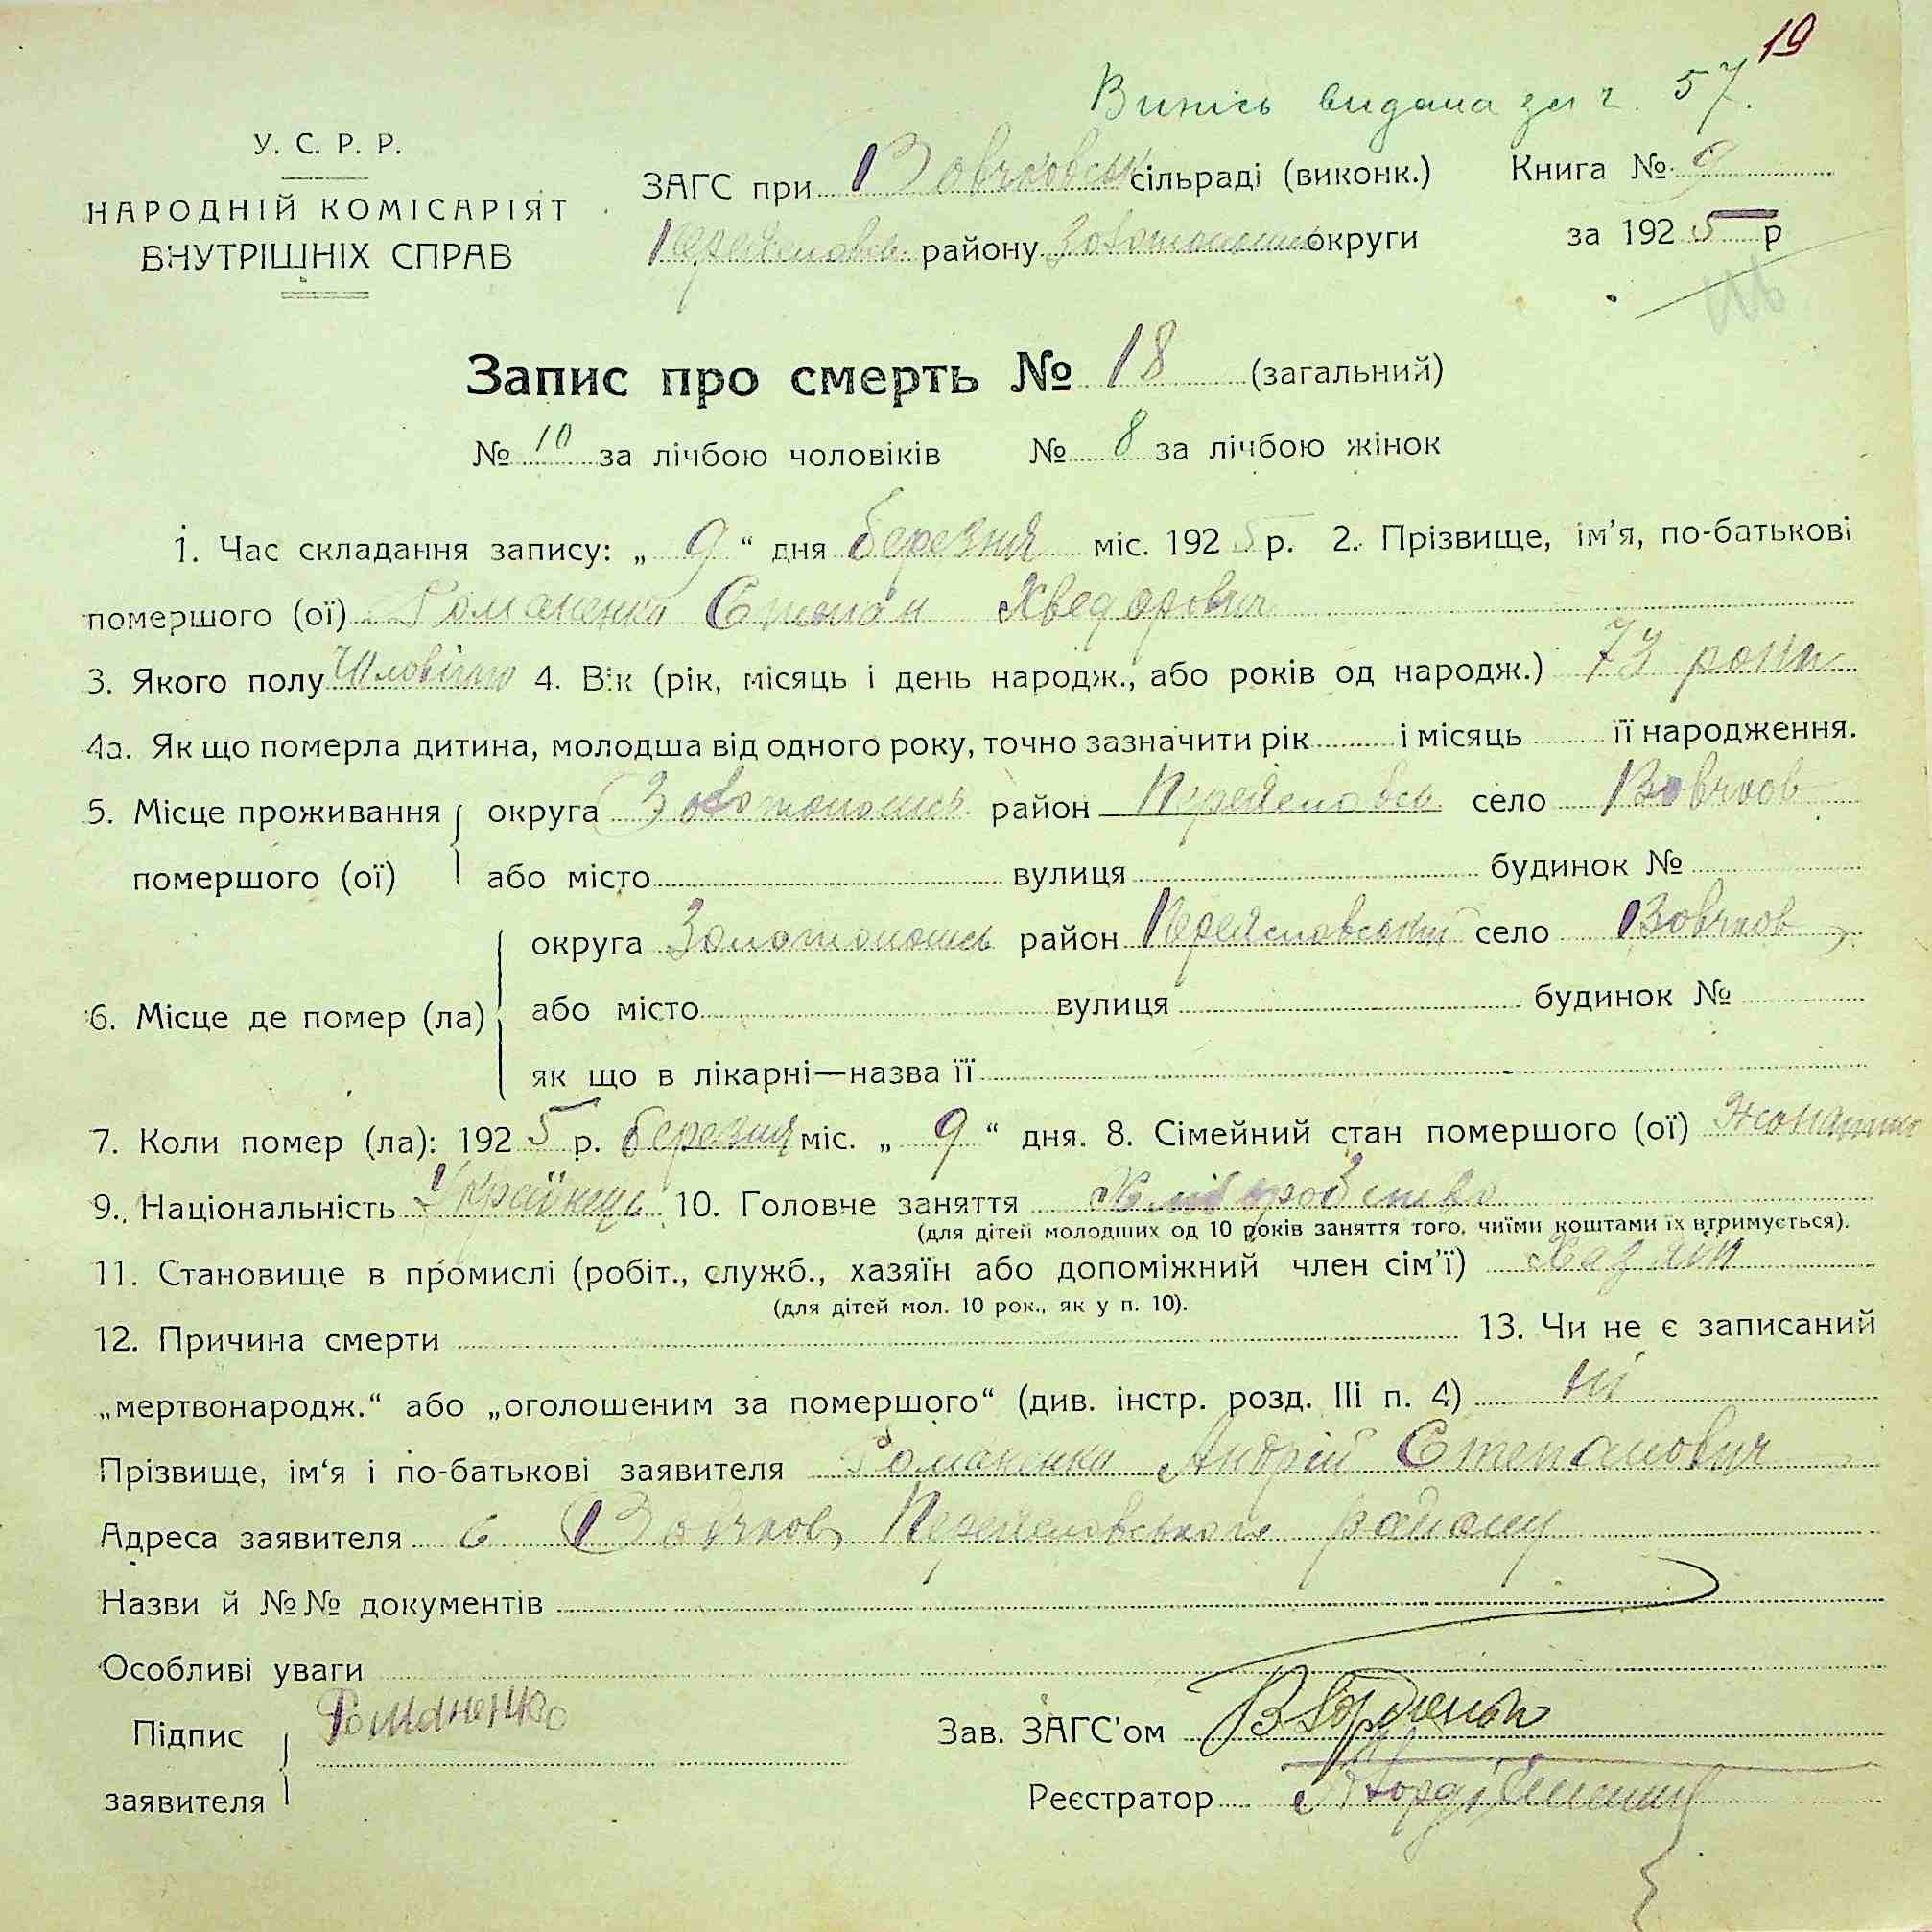 19
Випісь видана за г. 57.
У. С. Р. Р.
НАРОДНІЙ КОМІСАРІЯТ
ВНУТРІШНІХ СПРАВ
ЗАГС при Вовчковськ сільраді (виконк.)
Книга № 9
Переяславсь району Золотоношськ округи
за 1925 р
Запис про смерть № 18 (загальний)
№ 10 за лічбою чоловіків № 8 за лічбою жінок
1. Час складання запису: „ 9 “ дня березня міс. 1925 р. 2. Прізвище, ім’я, по-батькові
помершого (ої) Романенко Степан Хведорович
3. Якого полу Чоловічого 4. Вік (рік, місяць і день народж., або років од народж.) 73 роки
4а. Як що померла дитина, молодша від одного року, точно зазначити рік і місяць її народження.
5. Місце проживання округа Золотоношсь район Переяславсь село Вовчков
помершого (ої) або місто вулиця будинок №
округа Золотоношсь район Переяславський село Вовчков
6. Місце де помер (ла) або місто вулиця будинок №
як що в лікарні—назва її
7. Коли помер (ла): 1925 р. березня міс. „ 9 “ дня. 8. Сімейний стан помершого (ої) Жонатий
9. Національність Українець 10. Головне заняття Хліборобство
(для дітей молодших од 10 років заняття того, чиїми коштами їх втримується).
11. Становище в промислі (робіт., служб., хазяїн або допоміжний член сім’ї) Хазяїн
(для дітей мол. 10 рок., як у п. 10).
12. Причина смерти 13. Чи не є записаний
„мертвонародж.“ або „оголошеним за помершого“ (див. інстр. розд. III п. 4) ні
Прізвище, ім‘я і по-батькові заявителя Романенко Андрій Степанович
Адреса заявителя с Вовчков Переяславського району
Назви й №№ документів
Особливі уваги
Підпис Романенко
заявителя
Зав. ЗАГС’ом
Реєстратор